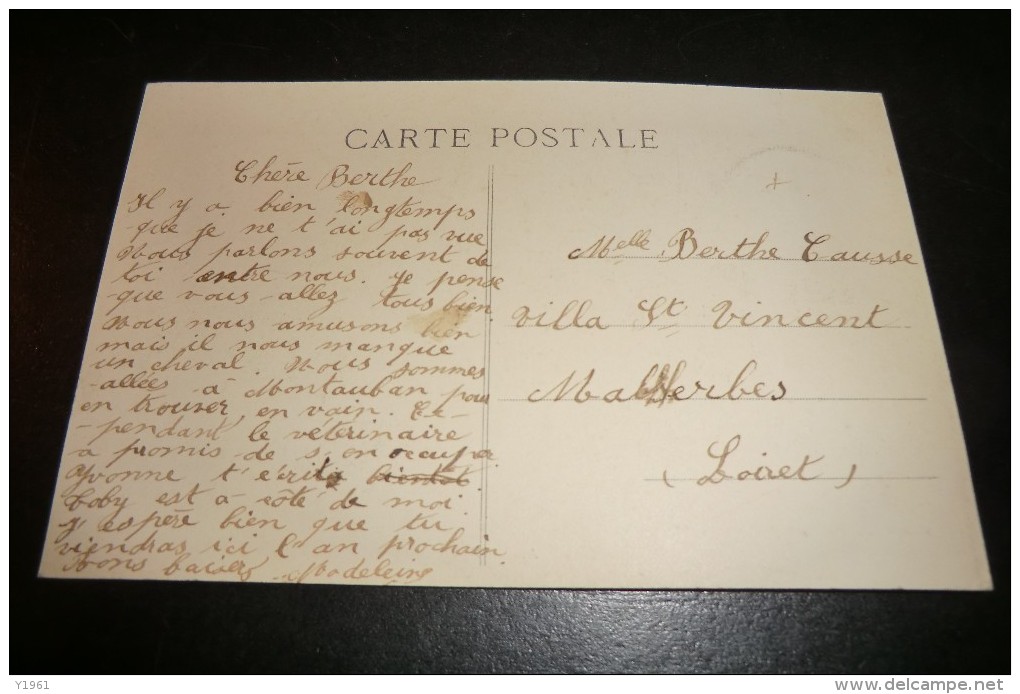 CARTE POSTALE
Chère Berthe
Il y a bien longtemps
que je ne t'ai pas vue
Nous parlons souvent de
toi entre nous. Je pense
que vous allez tous bien.
Nous nous amusons bien
mais il nous manque
un cheval. Nous sommes
allées à Montauban pour
en trouver, en vain. Ce-
-pendant le véterinaire
a promis de s'en occuper.
Yvonne t'écrit bientot.
Coby est à côté de moi.
J'espère bien que tu
viendras ici l'an prochain
Bons baisers Madeleine
Melle Berthe Causse
Villa St Vincent
Malherbes
(Loiret)
Y1961
delcampe.net